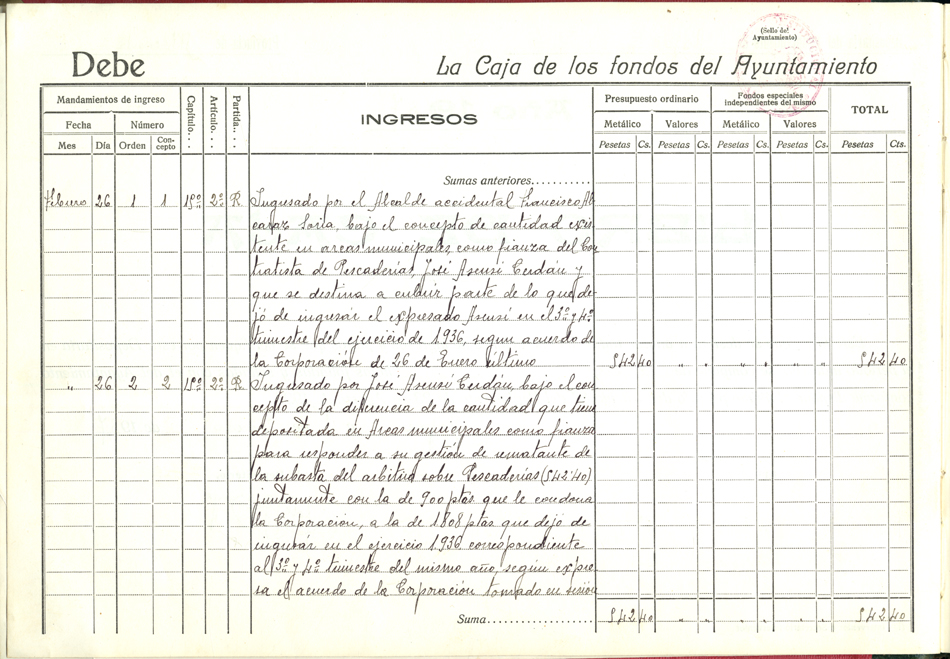 (Sello del
Ayuntamiento)
Debe
La Caja de los fondos del Ayuntamiento
Mandamientos de ingreso
Capítulo. . .
Artículo. . .
Partida. . .
INGRESOS
Presupuesto ordinario
Fondos especiales
independientes del mismo
TOTAL
Fecha Número
Metálico Valores Metálico Valores
Mes Día Orden Con-
cepto
Pesetas Cs. Pesetas Cs. Pesetas Cs. Pesetas Cs. Pesetas Cts.
Sumas anteriores..........
Febrero 26 1 1 15º 2º R. Ingresado por el Alcalde accidental Francisco Al
caraz Soria, bajo el concepto de cantidad exis
tente en arcas municipales, como fianza del Con
tratista de Pescaderías, José Asensi Cerdán y
que se destina a cubrir parte de lo que de-
jó de ingresar el expresado Asensi en el 3º y 4º
trimestre del ejercicio de 1936, segun acuerdo de
la Corporación de 26 de Enero último 542 40 " " " " " " 542 40
" 26 2 2 15º 2º R. Ingresado por José Asensi Cerdán, bajo el con
cepto de la diferencia de la cantidad que tiene
depositada en Arcas municipales como fianza
para responder a su gestión de rematante de
la subasta del arbitrio sobre Pescaderías (542'40)
juntamente con la de 900 ptas que le condona
la Corporación, a la de 1808 ptas que dejo de
ingresar en el ejercicio 1936 correspondiente
al 3º y 4º trimestre del mismo año, segun expre
sa el acuerdo de la Corporación tomado en sesión
Suma.................... 542 40 " " " " " " 542 40